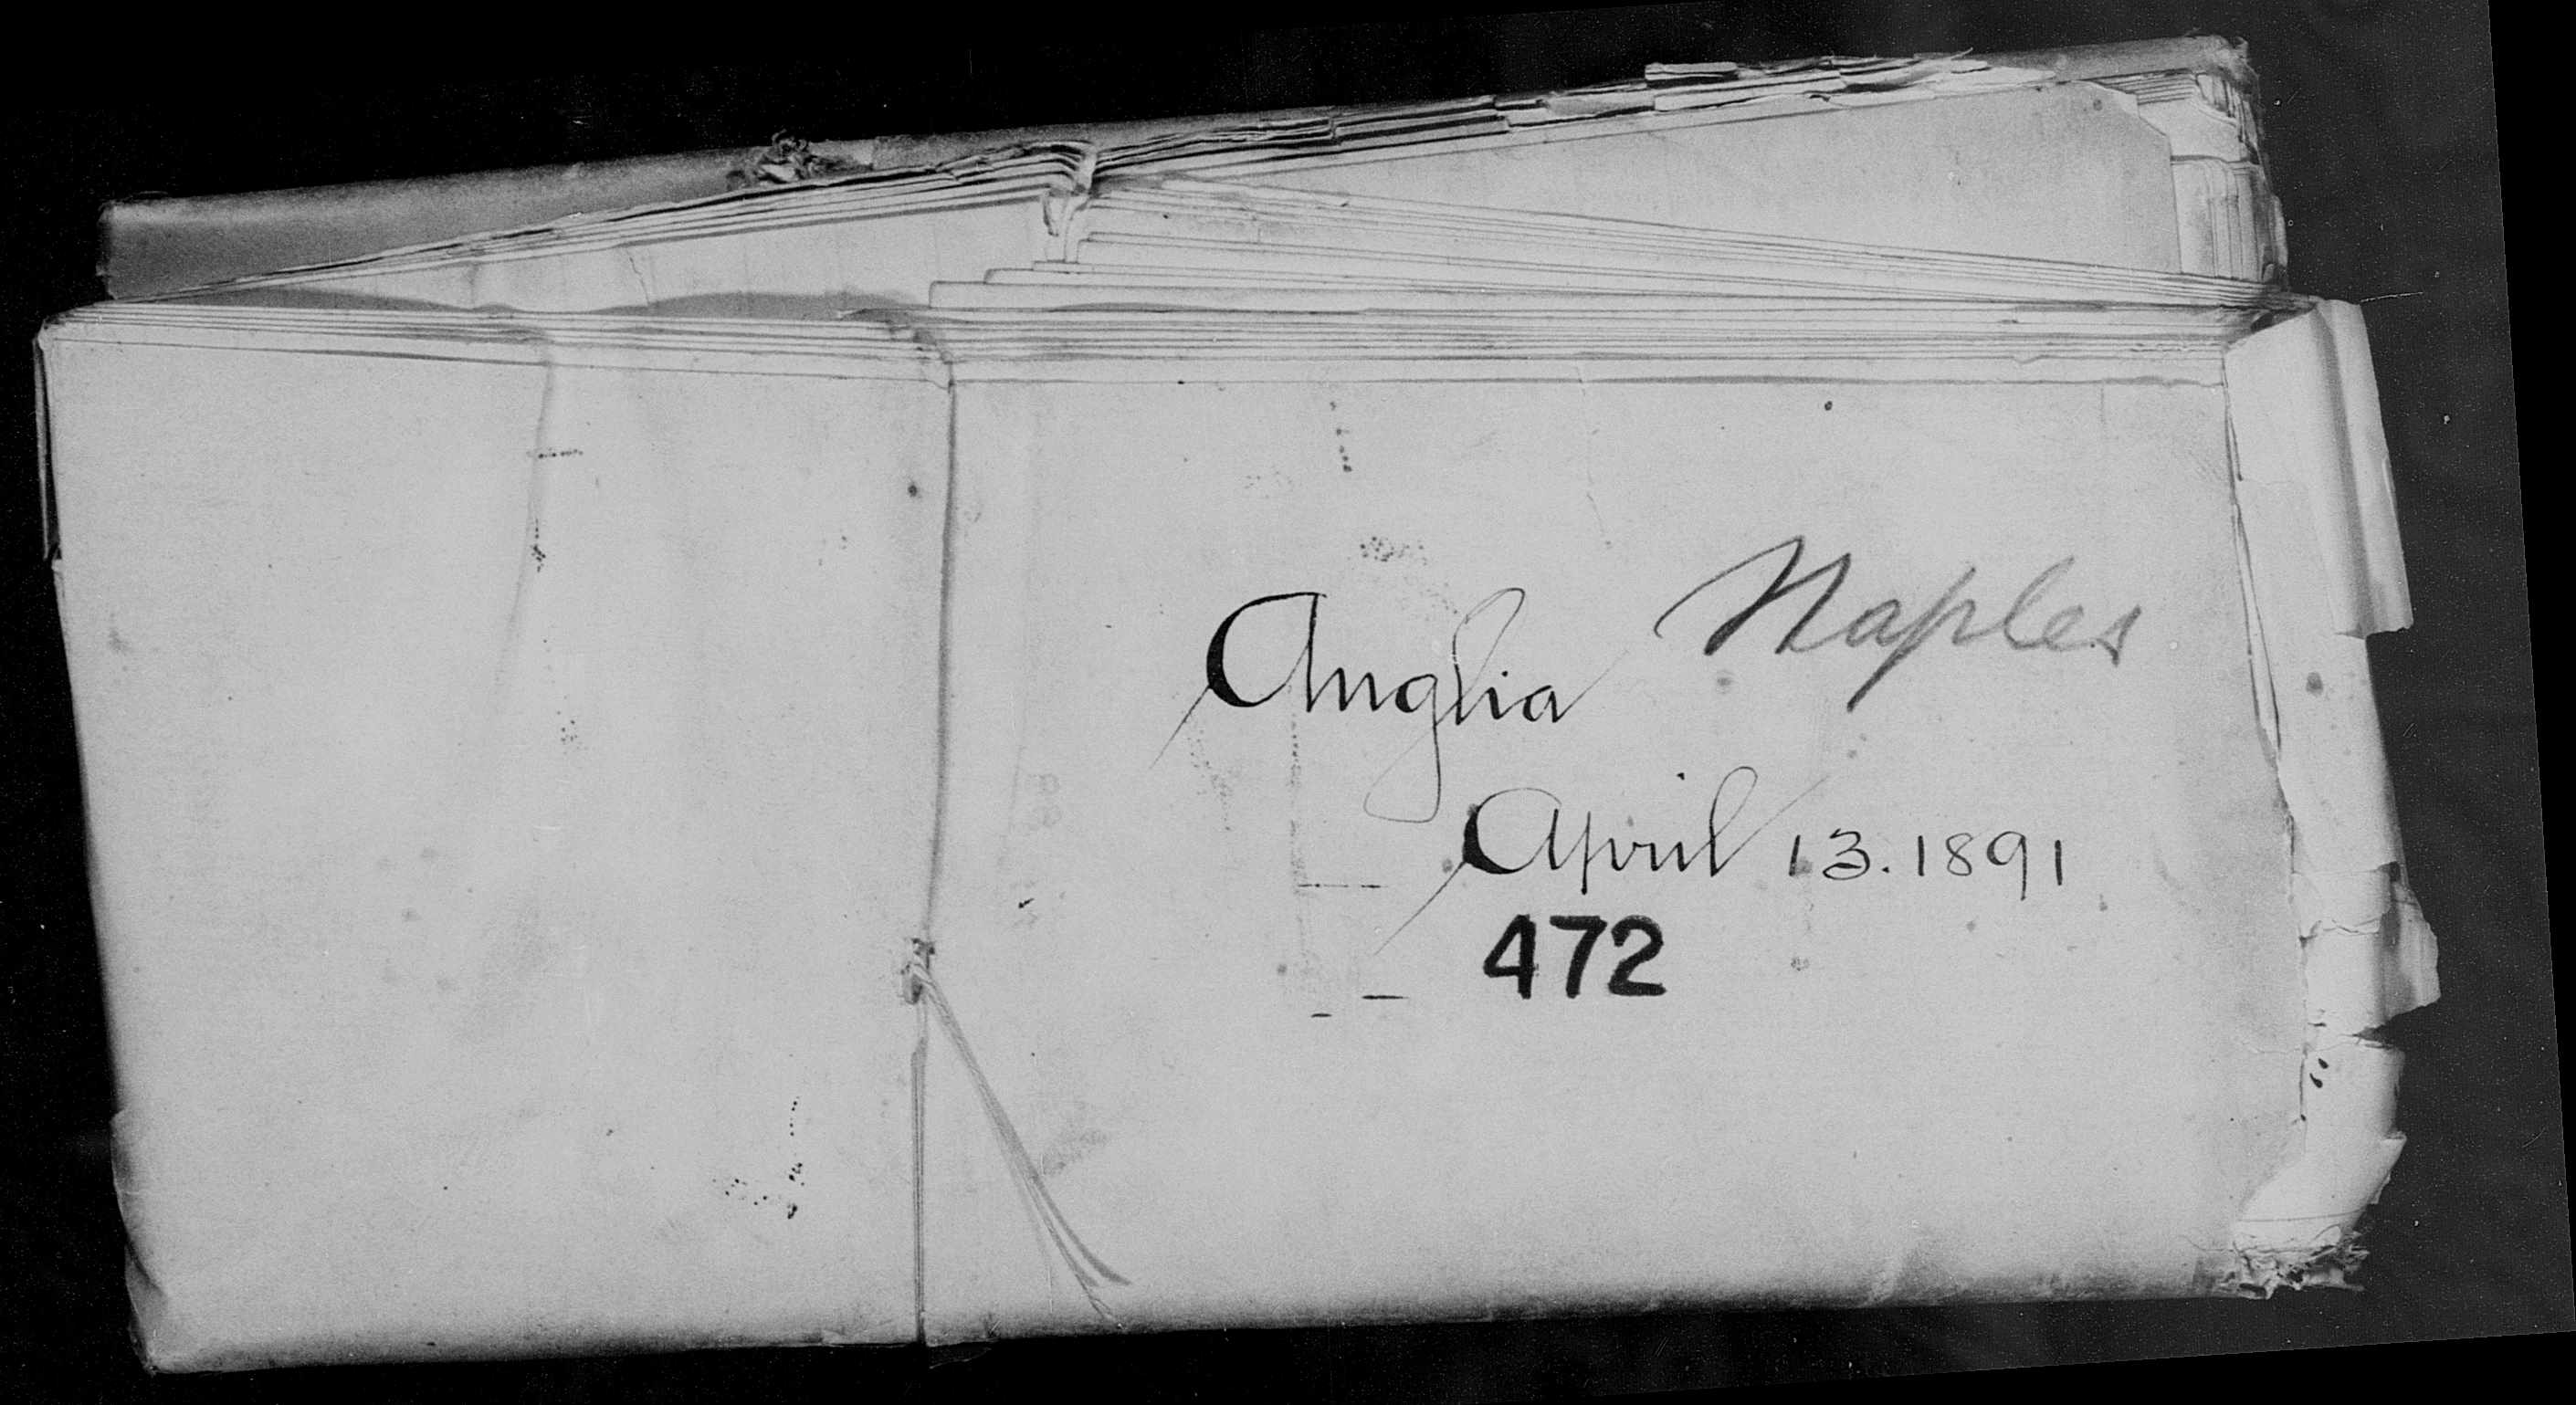 Anglia Naples
April 13. 1891
472